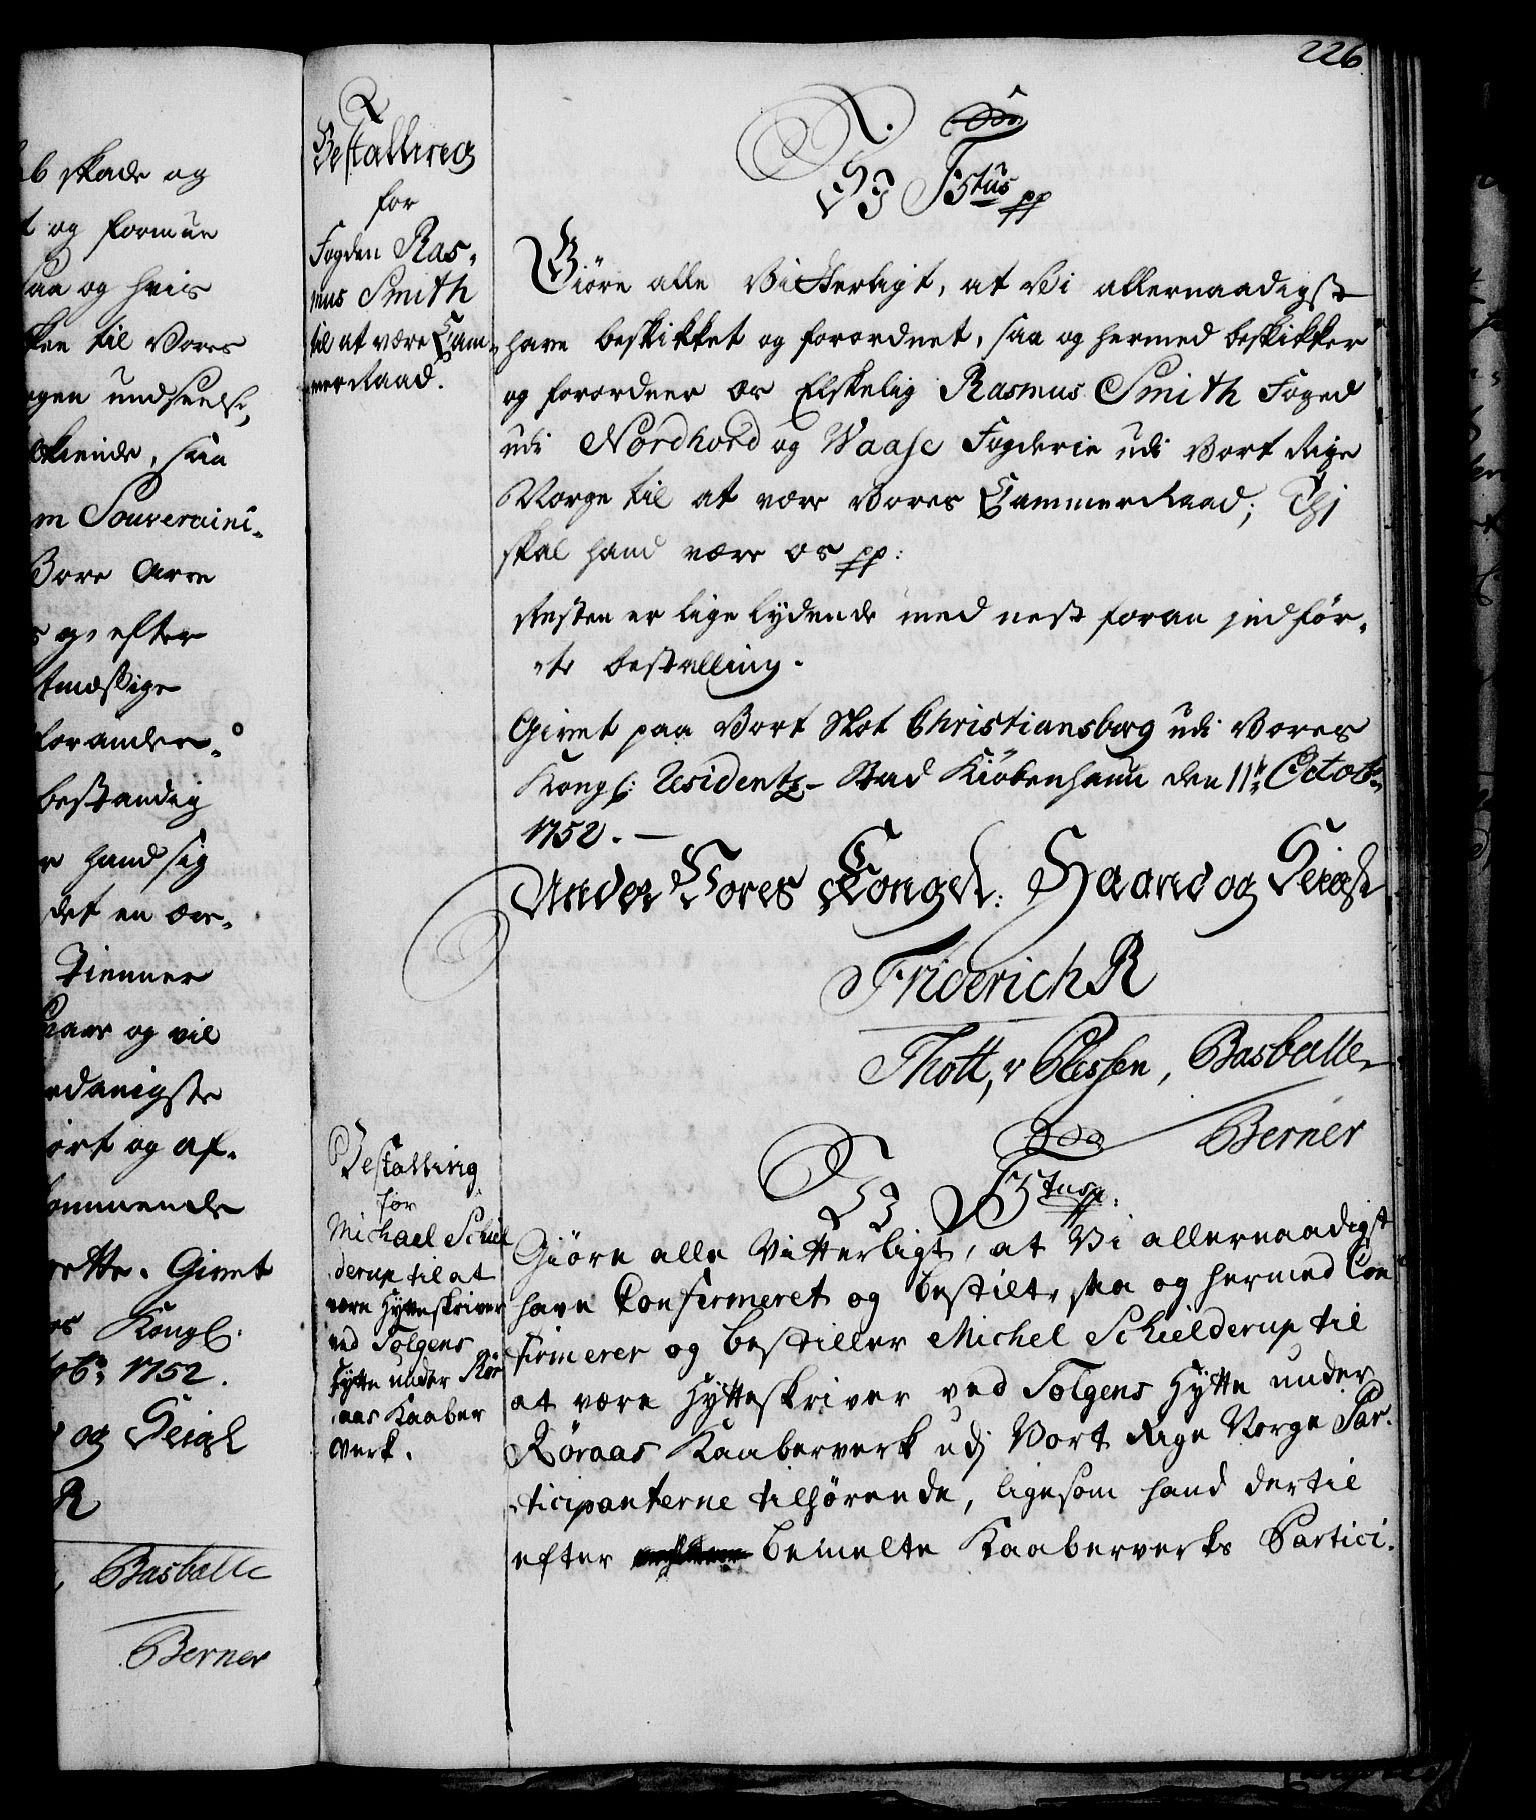 226
ab skade og
t og formue
saa og hvis
til Vores
ogen undseelse,
saa
m Souveraini-
Vore Arve
s og, efter
tmæssige
forander-
bestandig
r hand sig
det en ær-
Tienner
svar og vil
rdanigste
ort og af-
kommende
rette. Givet
os Kongl.
tobr: 1752.
og Seigl
R
Basballe
Berner
Bestalling
for
Fogden Ras-
mus Smith
til at være Cam-
mer Raad.
V. F 5tus pp
Giøre alle Vitterligt, at Vi allernaadigst
have beskikket og forordnet, saa og hermed beskikker
og forordner os Elskelig Rasmus Smith Foged
udi Nordhord og Waase Fogderie udi Vort Rige
Norge til at være Vores CammerRaad; Thj
skal hand være os pp:
Resten er lige lydende med nest foran indfør-
te bestalling.
Givet paa Vort Slot Christiansborg udi Vores
Kongl: Residentz-Stad Kiøbenhaun den 11te Octobr:
1752. —
Under Vores Kongel: Haand og Seigl
Friderich R
Thott, v Plessen, Basballe
Berner
Bestalling
for
Michael Schiel
derup til at
være Hytteskriver
ved Tolgens
Hytte under Rør
aas Kaaber
Verk.
V. F 5tus p.
Giøre alle Vitterligt, at Vi allernaadigst
have Confirmeret og bestilt, saa og hermed Con
firmerer og bestiller Michel Schielderup til
at være Hytteskriver ved Tolgens Hytte under
Røraas Kaaberverk udj Vort Rige Norge Par-
ticipanterne tilhørende, ligesom hand dertil
efter bemelte Kaaberverks Partici-